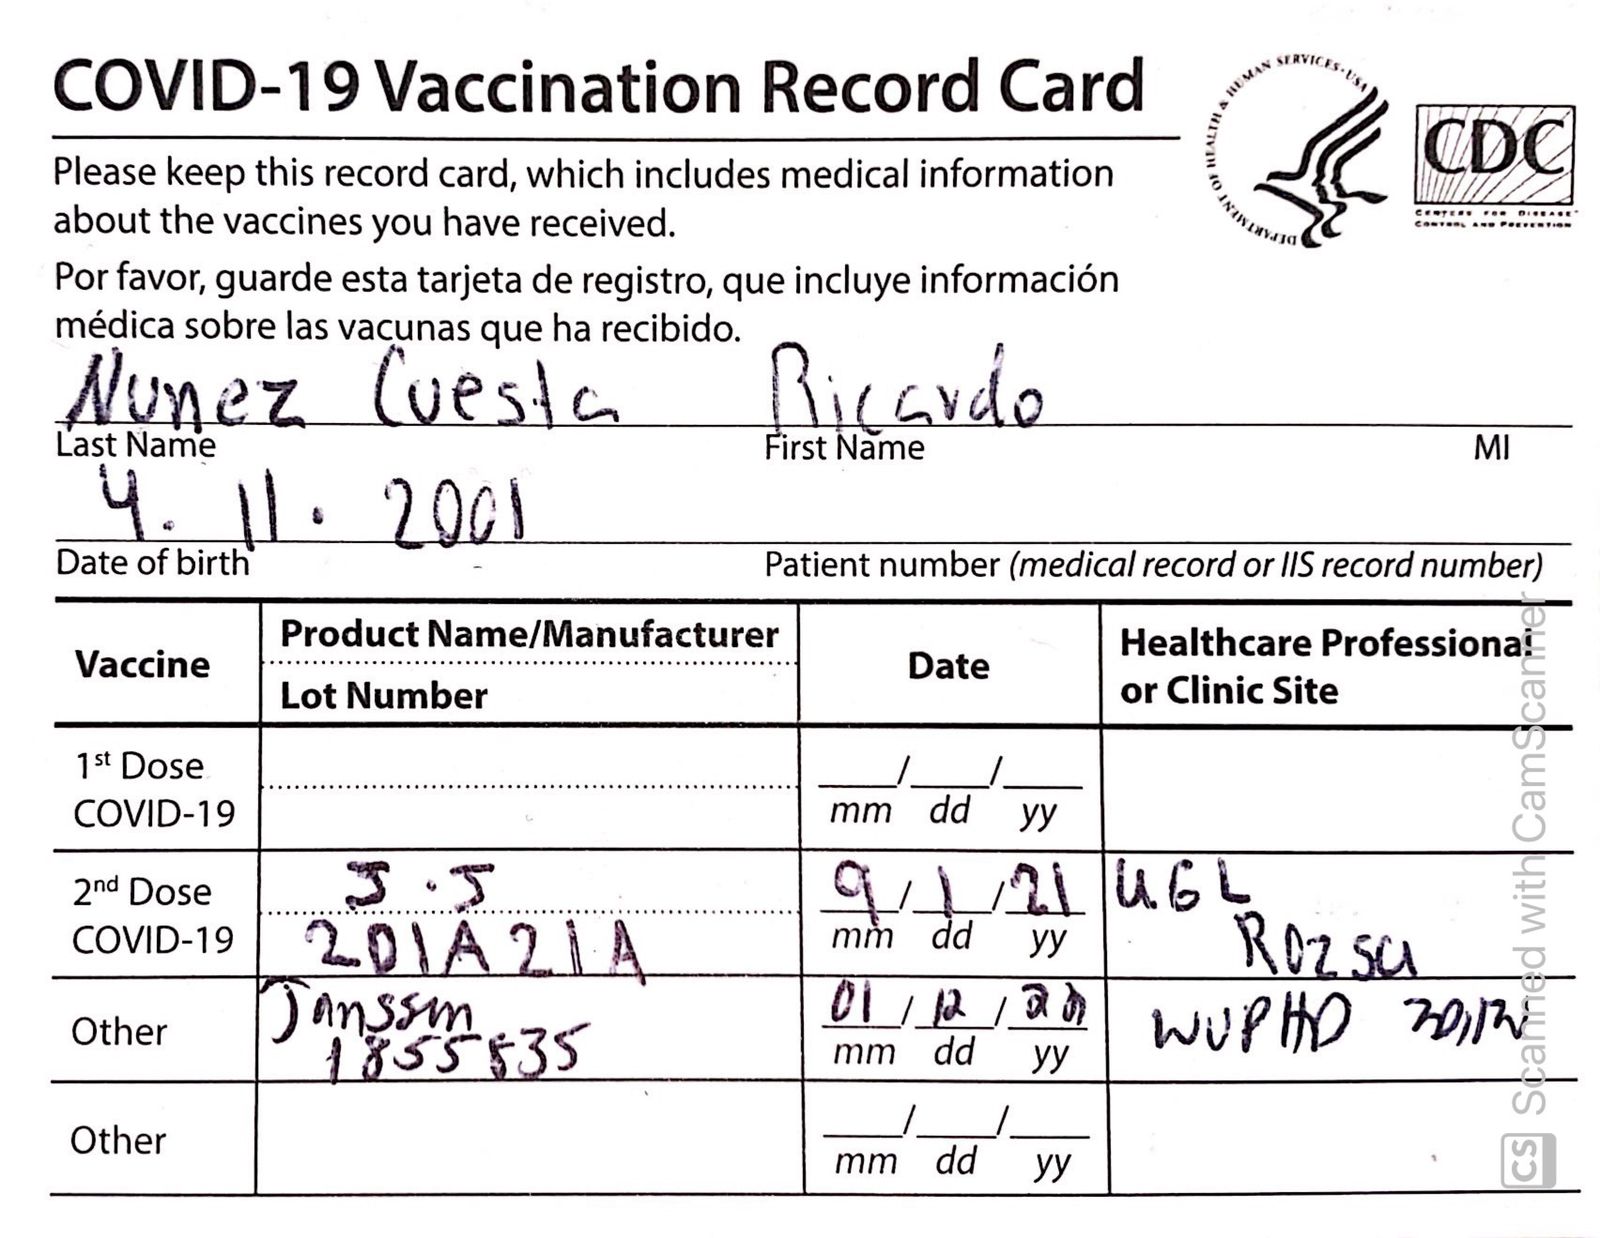 COVID-19 Vaccination Record Card
DEPARTMENT OF HEALTH & HUMAN SERVICES·USA
CDC
CENTERS FOR DISEASE
CONTROL AND PREVENTION
Please keep this record card, which includes medical information
about the vaccines you have received.
Por favor, guarde esta tarjeta de registro, que incluye información
médica sobre las vacunas que ha recibido.
Nunez Cuesta Ricardo
Last Name First Name MI
4. 11. 2001
Date of birth Patient number (medical record or IIS record number)
Vaccine
Product Name/Manufacturer
Lot Number
Date
Healthcare Professional
or Clinic Site
1st Dose
COVID-19
/ /
mm dd yy
2nd Dose
COVID-19
J.J
201A21A
9/1/21
mm dd yy
Other
1855835
01/12/
mm dd yy
Other
/ /
mm dd yy
CS Scanned with CamScanner